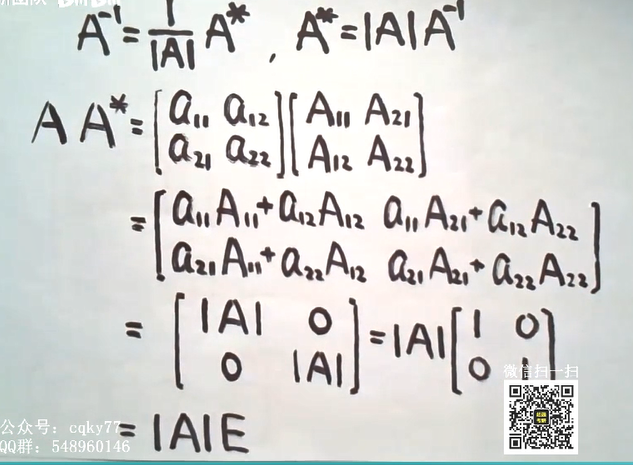 A⁻¹ = 1/|A| A*, A* = |A|A⁻¹
A A* = [a₁₁ a₁₂; a₂₁ a₂₂] [A₁₁ A₂₁; A₁₂ A₂₂]
= [a₁₁A₁₁+a₁₂A₁₂ a₁₁A₂₁+a₁₂A₂₂; a₂₁A₁₁+a₂₂A₁₂ a₂₁A₂₁+a₂₂A₂₂]
= [|A| 0; 0 |A|] = |A| [1 0; 0 1]
微信扫一扫
= |A|E
公众号：cqky77
QQ群：548960146